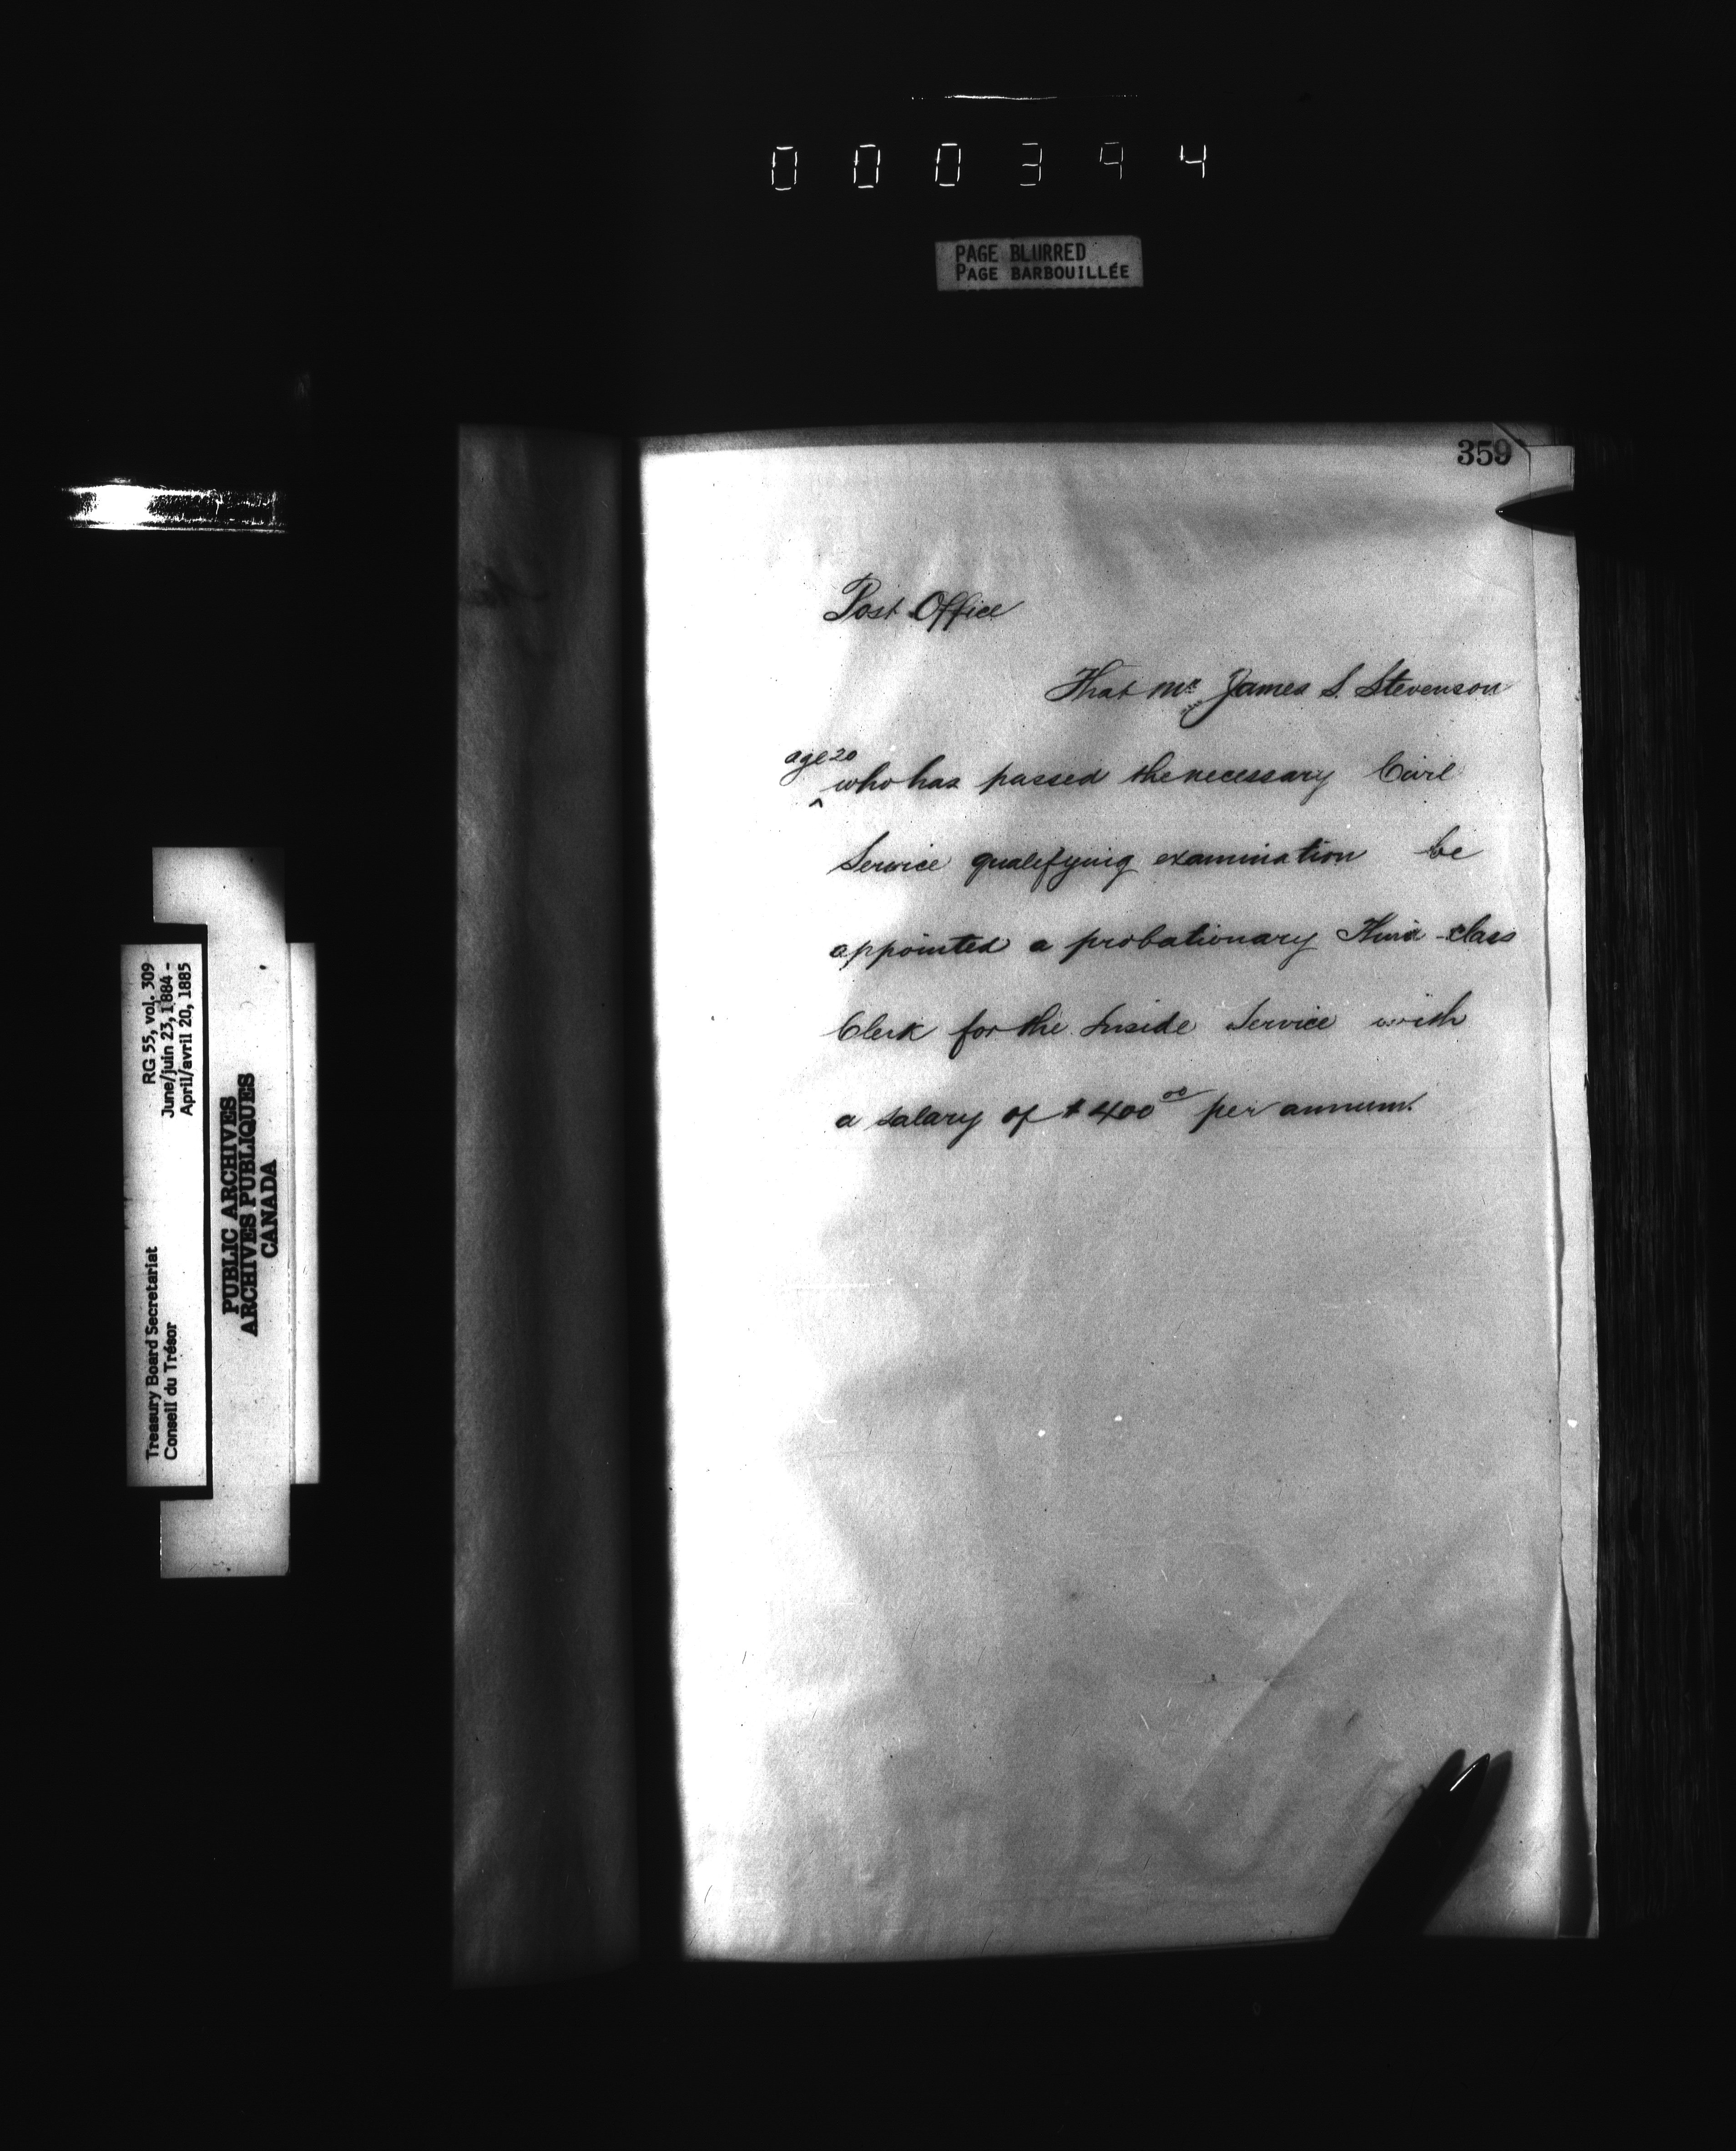 000394
PAGE BLURRED
PAGE BARBOUILLÉE
359
Post Office
That Mr James S. Stevenson
age 20
^ who has passed the necessary Civil
Service qualifying examination be
appointed a probationary Third-class
Clerk for the Inside Service with
a salary of $400 00 per annum.
RG 55, vol. 309
June/juin 23, 1884 -
April/avril 20, 1885
Treasury Board Secretariat
Conseil du Trésor
PUBLIC ARCHIVES
ARCHIVES PUBLIQUES
CANADA